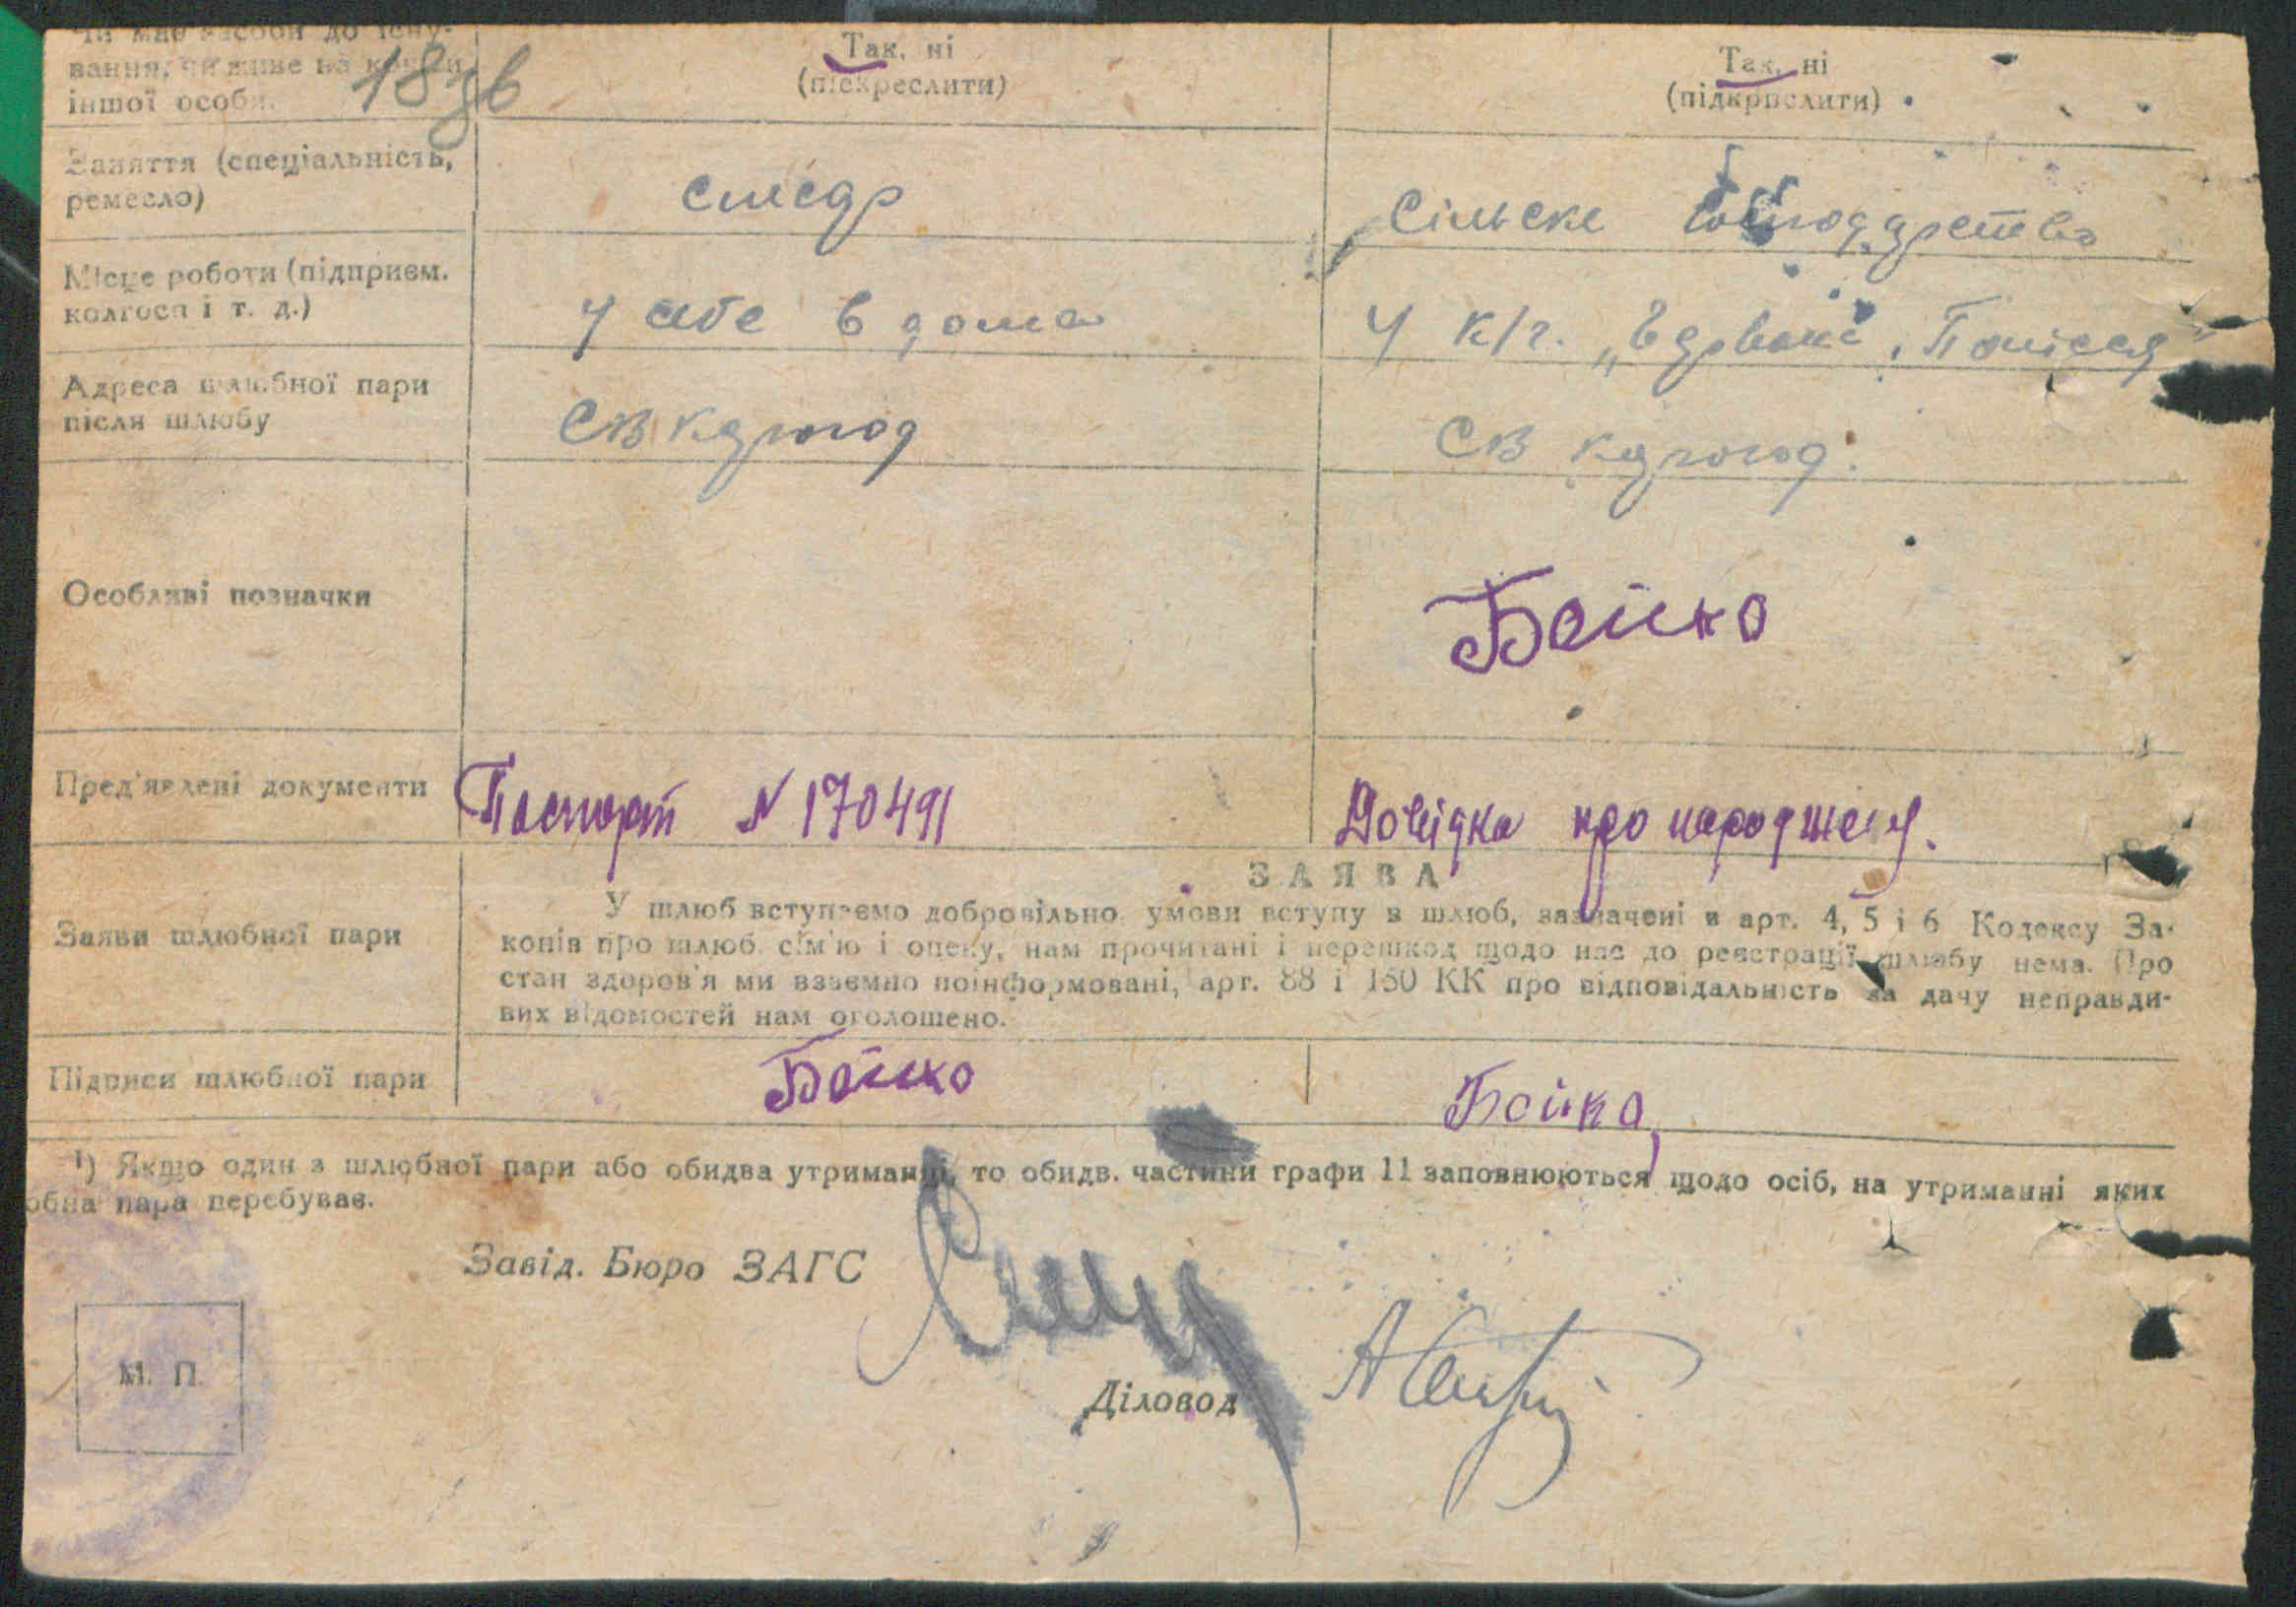 Чи має засоби до існу-
вання, чи живе на кошти
іншої особи.
18 зв
Так, ні
(підкреслити)
Так, ні
(підкрислити)
Заняття (спеціальність,
ремесло)
Сільске Господдрство
Місце роботи (підприєм.
колгосп і т. д.)
У себе в дома
У к/г. Полісся"
Адреса шлюбної пари
після шлюбу
Особливі позначки
Бойко
Пред'явлені документи
Паспорт N 170491
Довідка про народжень.
ЗАЯВА
Заяви шлюбної пари
У шлюб вступаємо добровільно умови вступу в шлюб, зазначені в арт. 4, 5 і 6 Кодексу За-
конів про шлюб сім'ю і опеку, нам прочитані і перешкод щодо нас до реєстрації шлюбу нема. Про
стан здоров'я ми взаємно поінформовані, арт. 88 і 130 КК про відповідальність за дачу неправди-
вих відомостей нам оголошено.
Підписи шлюбної пари
Бойко
Бойко
¹) Якщо один з шлюбної пари або обидва утриманці, то обидв. частини графи 11 заповнюються щодо осіб, на утриманні яких
обна пара перебуває.
Завід. Бюро ЗАГС
М. П.
Діловод